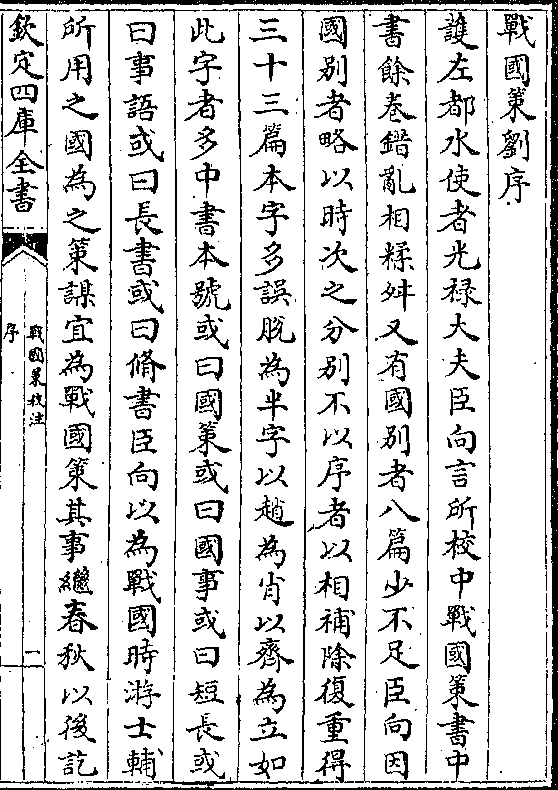 戰國策劉序
護左都水使者光禄大夫臣向言所校中戰國策書中
書餘卷錯亂相糅舛又有國别者八篇少不足臣向因
國别者略以時次之分别不以序者以相補除復重得
三十三篇本字多誤脱為半字以趙為肖以齊為立如
此字者多中書本號或曰國策或曰國事或曰短長或
曰事語或曰長書或曰脩書臣向以為戰國時游士輔
所用之國為之策謀宜為戰國策其事繼春秋以後訖
欽定四庫全書
戰國策校注
序
一